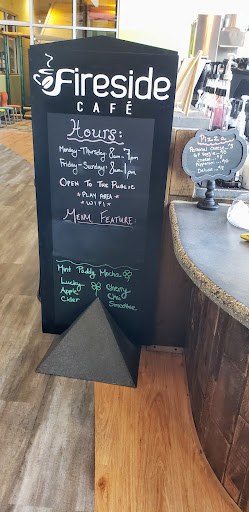 Fireside
CAFÉ
Hours:
Monday-Thursday 8am-7pm
OPEN TO THE PUBLIC
*PLAY AREA*
*WIFI*
MENU FEATURE:
Mint Paddy Mocha
Lucky
Apple
Cider
Cherry
Chai
Smoothie
Pizza
Personal Cheese